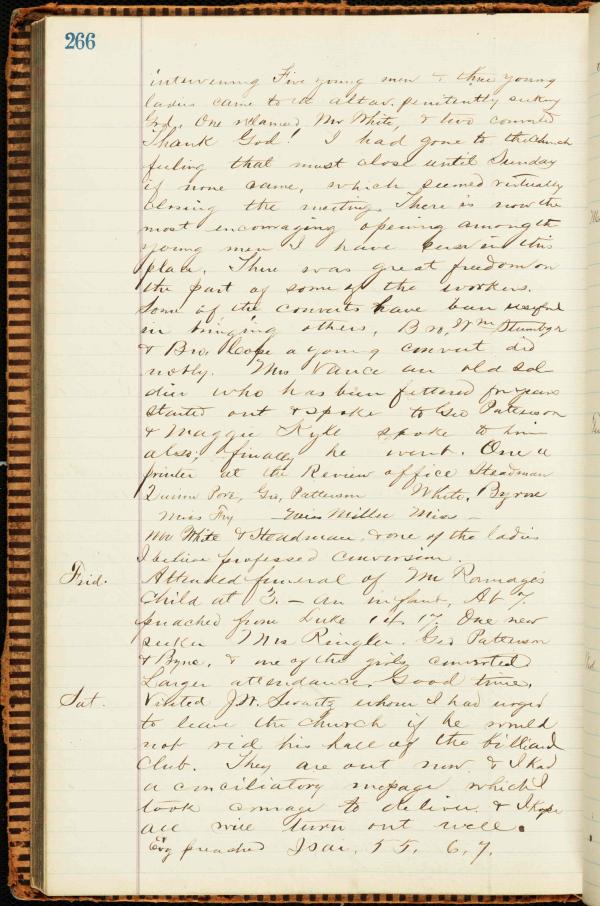 266
intervening Five young men & three young
ladies came to the altar, penitently seeking
God, One reclaimed Mr White, & two converted
Thank God! I had gone to the church
feeling that must close until Sunday
if none came, which seemed virtually
closing the meeting. There is now the
most encouraging opening among the
young men I have ever in this
place. There was great freedom on
the part of some of the workers.
Some of the converts have been useful
in bringing others, Bro, Wm
& Bro. Cope a young convert did
nobly. Mr Vance an old sol
dier who has been fettered for years
started out & spoke to Geo Patterson
& Maggie Kyle spoke to him
also; finally he went. One a
printer at the Review office Steadman
Geo, Patterson White, Byrne
Miss Fry Miss Miller Miss —
Mr White & Steadman & one of the ladies
I believe professed conversion.
Frid. Attended funeral of Mr Ramage's
child at 3. — an infant. At 7.
preached from Luke 1st. 17. One new
seeker Mrs Ringler. Geo Patterson
& Byrne, & one of the girls converted
Larger attendance. Good time.
Sat. Visited J.W. Swartz whom I had urged
to leave the church if he would
not rid his hall of the billiard
club. They are out now & I had
a conciliatory message which I
took courage to deliver & I hope
all will turn out well.
Evg preached Isai. 55. 6, 7.